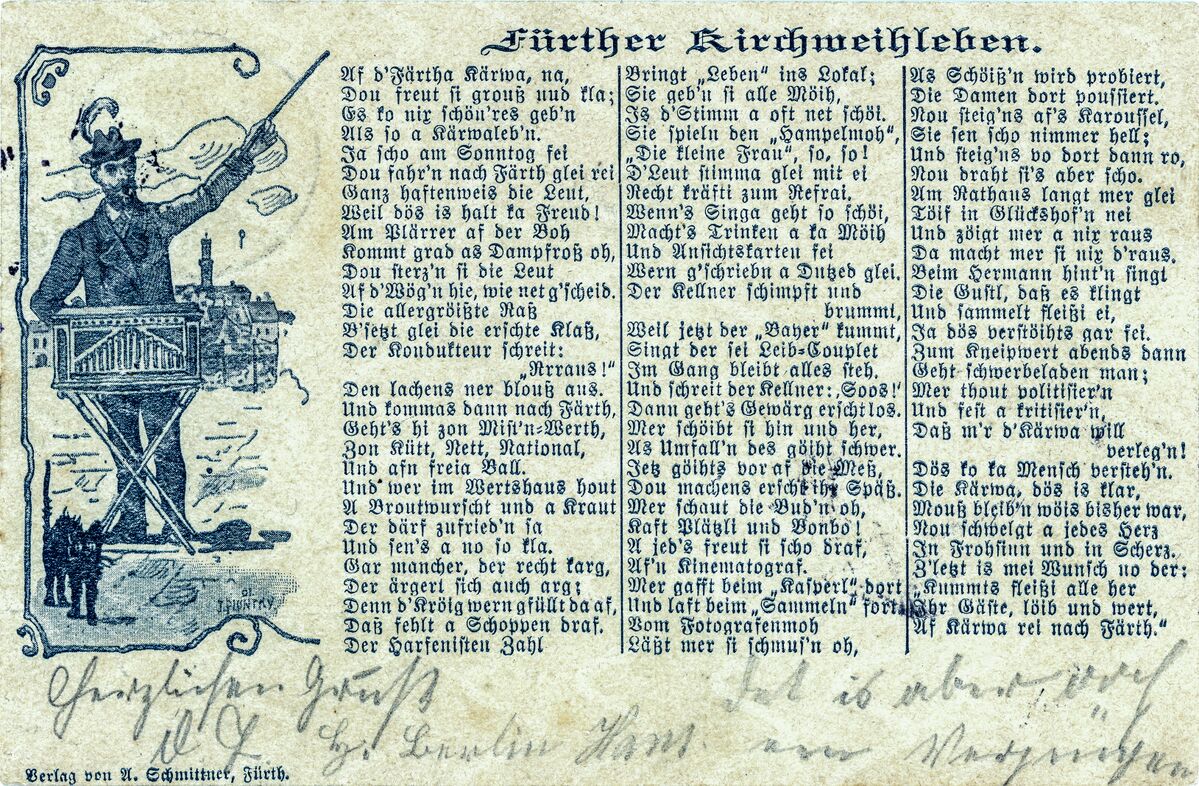 Fürther Kirchweihleben.
Af d'Färtha Kärwa, na,
Dou freut si grouß und kla;
Es ko nix schön'res geb'n
Als so a Kärwaleb'n.
Ja scho am Sonntog fei
Dou fahr'n nach Färth glei rei
Ganz haftenweis die Leut,
Weil dös is halt ka Freud!
Am Plärrer af der Boh
Kommt grad as Dampfroß oh,
Dou sterz'n si die Leut
Af d'Wög'n hie, wie net g'scheid.
Die allergröißte Raß
B'setzt glei die erschte Klaß,
Der Kondukteur schreit:
„Rrraus!"
Den lachens ner blouß aus.
Und kommas dann nach Färth,
Geht's hi zon Mist'n-Werth,
Zon Kütt, Nett, National,
Und afn freia Ball.
Und wer im Wertshaus hout
A Broutwurscht und a Kraut
Der därf zufried'n sa
Und sen's a no so kla.
Gar mancher, der recht karg,
Der ärgert sich auch arg;
Denn d'Kröig wern gfüllt da af,
Daß fehlt a Schoppen draf.
Der Harfenisten Zahl
Bringt „Leben" ins Lokal;
Sie geb'n si alle Möih,
Is d'Stimm a oft net schöi.
Sie spieln den „Hampelmoh",
„Die kleine Frau", so, so!
D'Leut stimma glei mit ei
Recht kräfti zum Refrai.
Wenn's Singa geht so schöi,
Macht's Trinken a ka Möih
Und Ansichtskarten fei
Wern g'schriebn a Dutzed glei.
Der Kellner schimpft und
brummt,
Weil jetzt der „Bayer" kummt,
Singt der sei Leib-Couplet
Im Gang bleibt alles steh.
Und schreit der Kellner: ‚Soos!'
Dann geht's Gewärg erscht los.
Mer schöibt si hin und her,
As Umfall'n des göiht schwer.
Jetz göihts vor af die Meß,
Dou machens erscht ihr Späß.
Mer schaut die Bud'n oh,
Kaft Plätzli und Bonbo!
A jed's freut si scho draf,
Af'n Kinematograf.
Mer gafft beim „Kasperl" dort
Und laft beim „Sammeln" fort,
Vom Fotografenmoh
Läßt mer si schmus'n oh,
As Schöiß'n wird probiert,
Die Damen dort poussiert.
Nou steig'ns af's Karoussel,
Sie sen scho nimmer hell;
Und steig'ns vo dort dann ro,
Nou draht si's aber scho.
Am Rathaus langt mer glei
Töif in Glückshof'n nei
Und zöigt mer a nix raus
Da macht mer si nix d'raus.
Beim Hermann hint'n singt
Die Gustl, daß es klingt
Und sammelt fleißi ei,
Ja dös verstöihts gar fei.
Zum Kneipwert abends dann
Geht schwerbeladen man;
Mer thout politisier'n
Und fest a kritisier'n,
Daß m'r d'Kärwa will
verleg'n!
Dös ko ka Mensch versteh'n.
Die Kärwa, dös is klar,
Mouß bleib'n wöis bisher war,
Nou schwelgt a jedes Herz
In Frohsinn und in Scherz.
Z'letzt is mei Wunsch no der:
„Kummts fleißi alle her
Ihr Gäste, löib und wert,
Af Kärwa rei nach Färth."
Herzlichen Gruß
Berlin Hans.
Det is aber och
een Verjnügen
Verlag von A. Schmittner, Fürth.